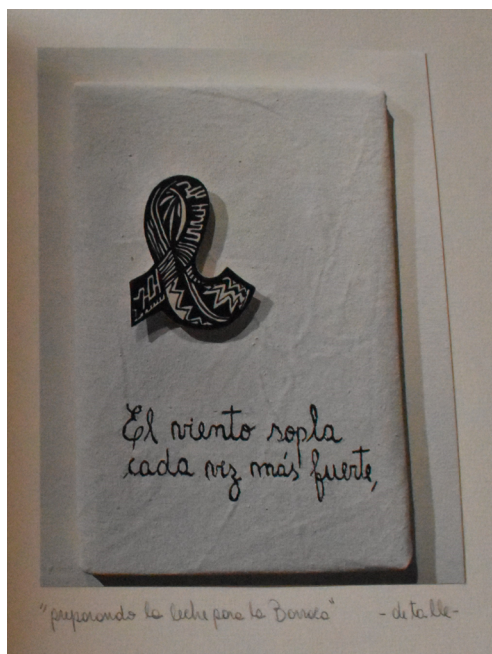 El viento sopla
cada vez más fuerte,
"preparando la leche para la Borraca" -detalle-